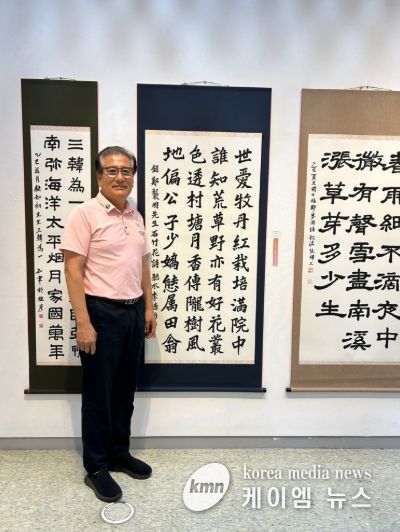 雨細不滴夜中
微有聲雪盡南溪
漲草芽多少生
世愛牡丹紅栽培滿院中
誰知荒草野亦有好花叢
色透村塘月香傳隴樹風
地偏公子少嬌態屬田翁
先生石竹花詩
三韓為一
南弥海洋太平烟月家國萬年
kmn
korea media news
케이엠 뉴스